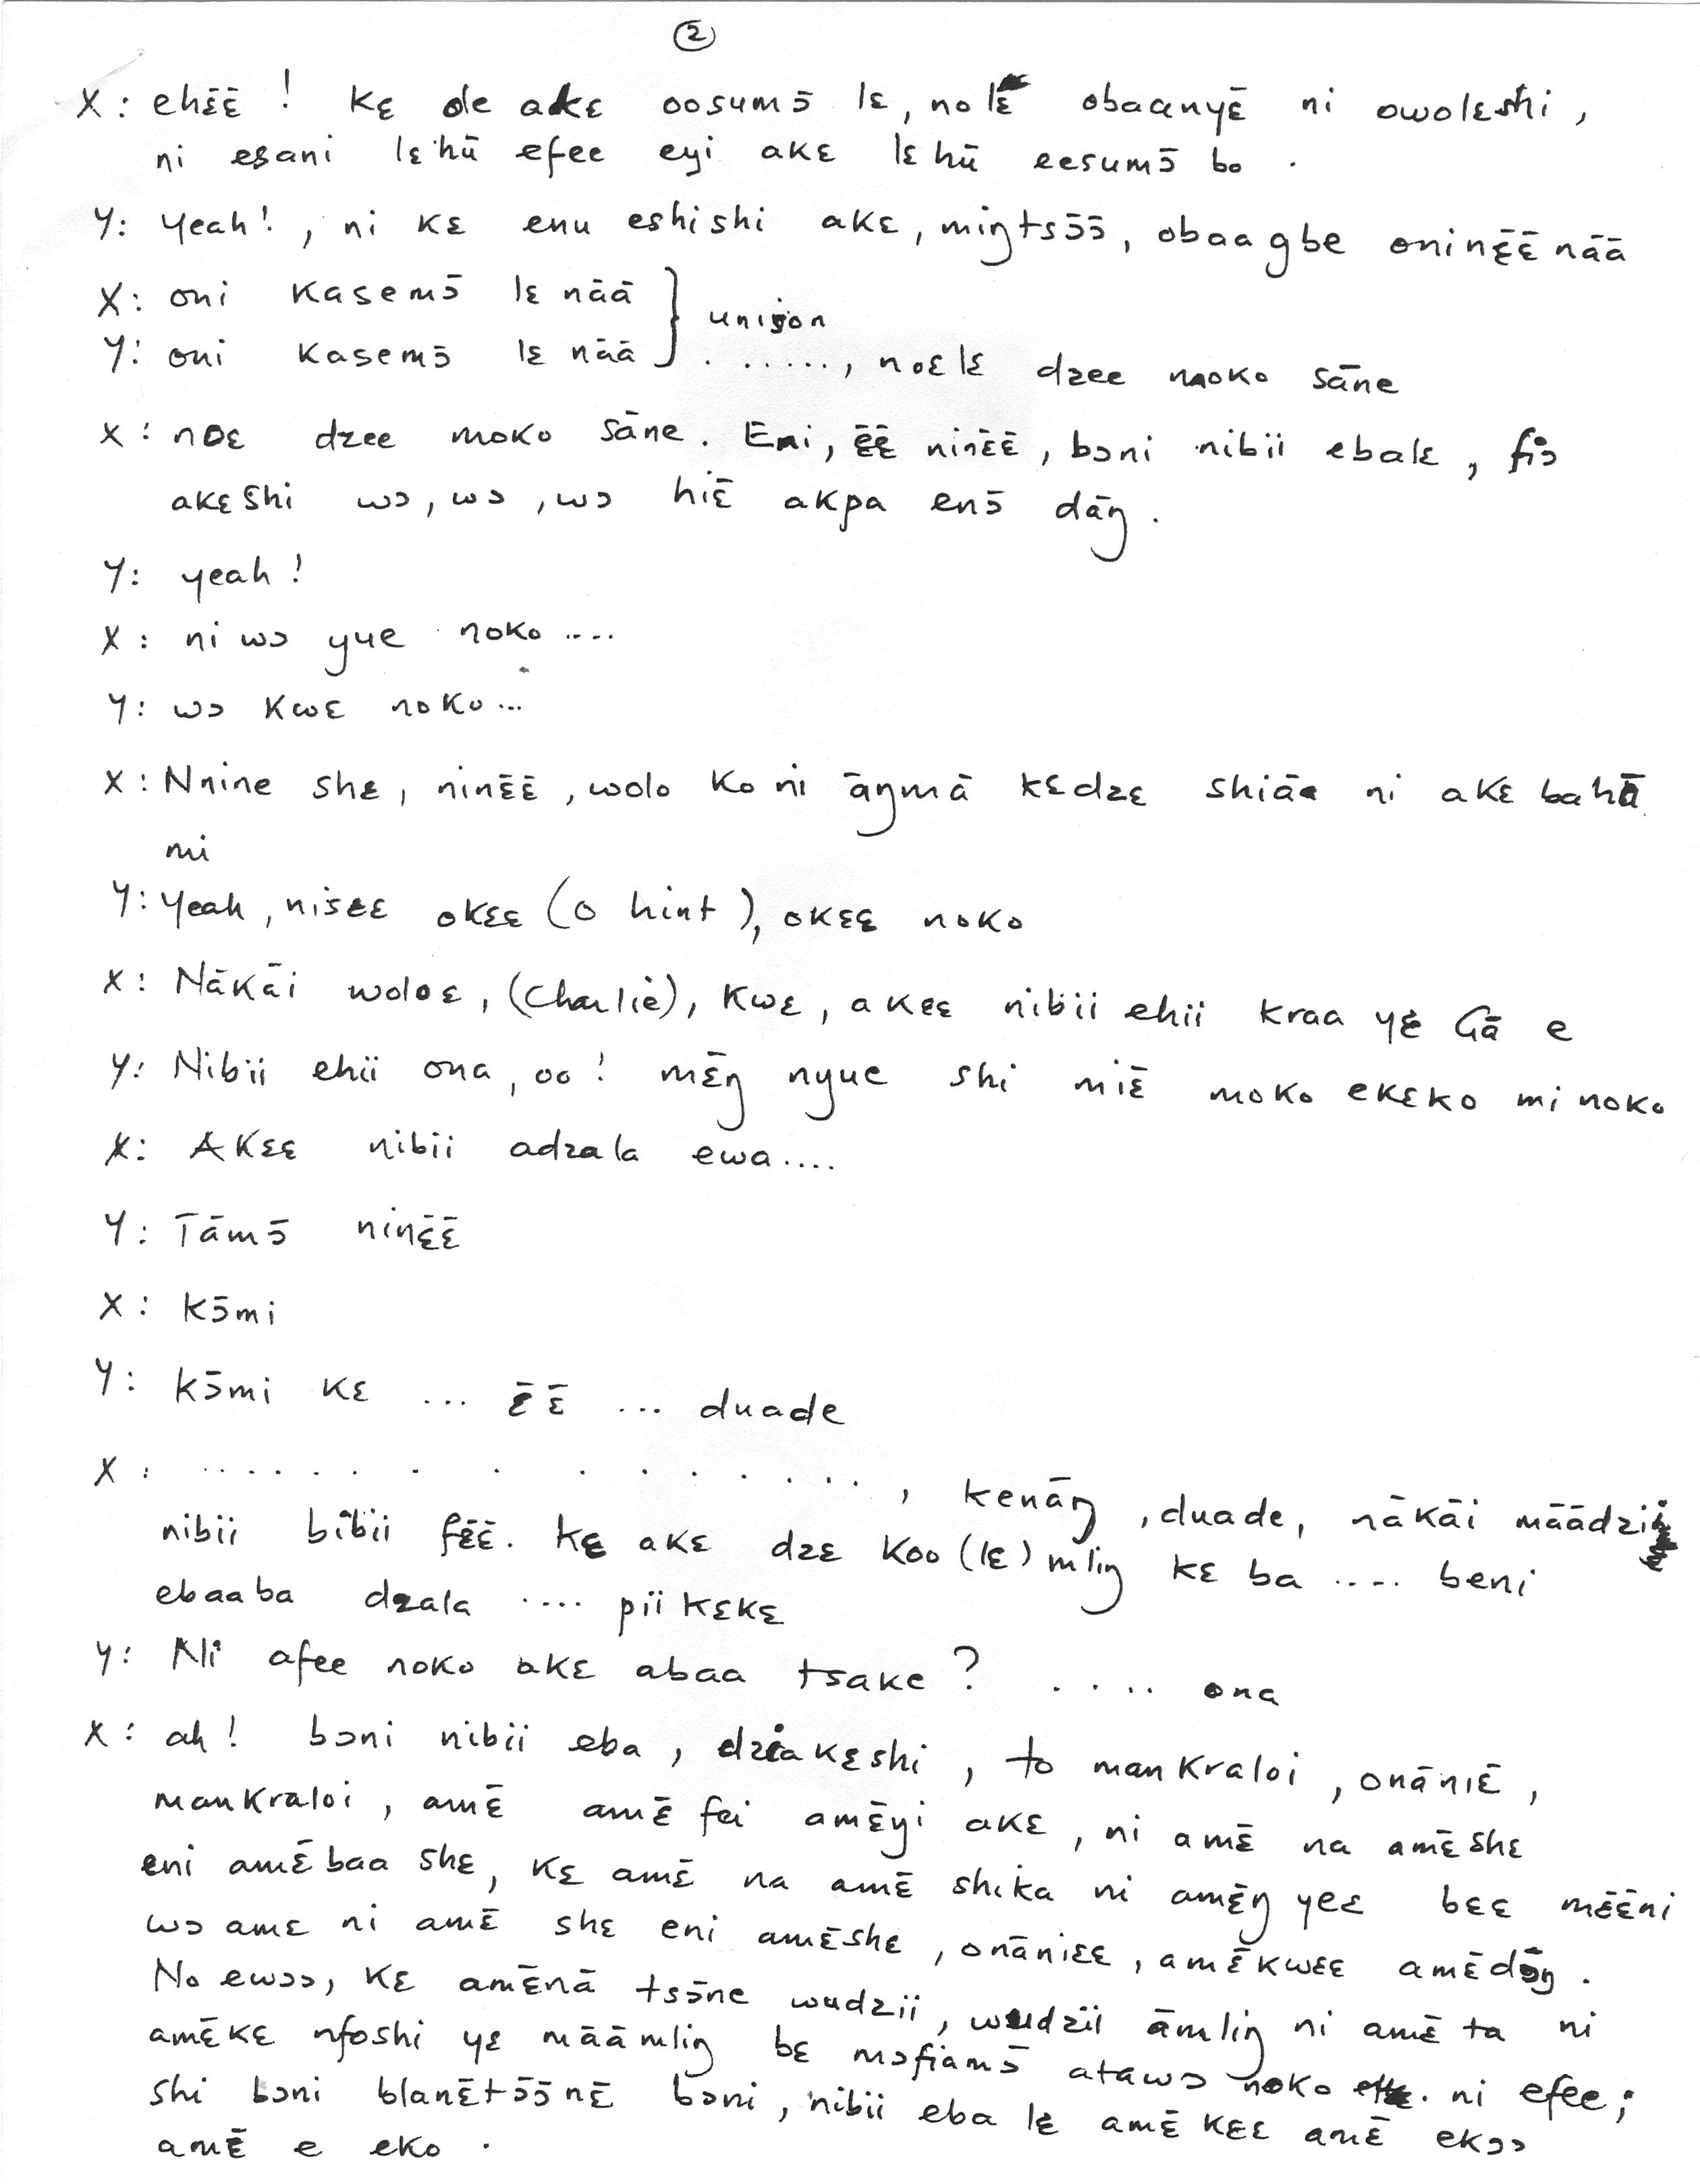 ②
X: ehɛ̄ɛ̄ ! Kɛ de akɛ oosumɔ̄ lɛ, no lɛ̄ obaanyɛ̄ ni owolɛshi,
ni esani lɛ hū efee eyi akɛ lɛ hū eesumɔ̄ bo .
Y: Yeah!, ni kɛ enu eshishi akɛ, miŋtsɔ̄ɔ̄, obaagbe oninɛ̄ɛ̄ nāā
X: oni kasemɔ̄ lɛ nāā } unison
Y: oni kasemɔ̄ lɛ nāā ......, noɛ lɛ dzee moko sāne
X: noɛ dzee moko sāne. Eni, ɛ̄ɛ̄ ninɛ̄ɛ̄, bɔni nibii ebalɛ, fiɔ
akɛshi wɔ, wɔ, wɔ hiɛ̄ akpa enɔ̄ dāŋ.
Y: yeah!
X: ni wɔ yue noko ....
Y: wɔ kwɛ noko...
X: Nnine shɛ, ninɛ̄ɛ̄, wolo ko ni āŋmā kɛdzɛ shiāa ni akɛ bahā
mi
Y: Yeah, nisɛɛ okɛɛ (o hint), okɛɛ noko
X: Nākāi woloɛ, (Charlie), kwɛ, akɛɛ nibii ehii kraa yɛ Gā e
Y: Nibii ehii ona, oo! mɛ̄ŋ nyue shi miɛ̄ moko ekɛko mi noko
X: Akɛɛ nibii adzala ewa....
Y: Tāmɔ̄ ninɛ̄ɛ̄
X: kɔ̄mi
Y: kɔ̄mi kɛ ... ɛ̄ɛ̄ ... duade
X: .............., kenāŋ, duade, nākāi māādzii
nibii bibii fɛ̄ɛ̄. Kɛ akɛ dzɛ koo (lɛ) mliŋ kɛ ba .... beni
ebaaba dzala .... pii kɛkɛ
Y: Ni afee noko akɛ abaa tsake? .... ona
X: ah! bɔni nibii eba, dziakɛshi, to mankraloi, onāniɛ̄,
mankraloi, amɛ̄ amɛ̄ fei amɛ̄yi akɛ, ni amɛ̄ na amɛ̄shɛ
eni amɛ̄baa shɛ, kɛ amɛ̄ na amɛ̄ shika ni amɛ̄ŋ yeɛ bɛɛ mɛ̄ɛ̄ni
wɔ amɛ ni amɛ̄ shɛ eni amɛ̄shɛ, onāniɛɛ, amɛ̄kwɛɛ amɛ̄dɔ̄ŋ.
No ewɔɔ, kɛ amɛ̄nā tsɔ̄ne wudzii, wudzii āmliŋ ni amɛ̄ ta ni
amɛ̄kɛ nfoshi yɛ māāmliŋ bɛ mɔfiamɔ̄ atawɔ noko . ni efee;
shi bɔni blanɛ̄tɔ̄ɔ̄nɛ̄ bɔni, nibii eba lɛ amɛ̄ kɛɛ amɛ̄ ekɔɔ
amɛ̄ e eko .